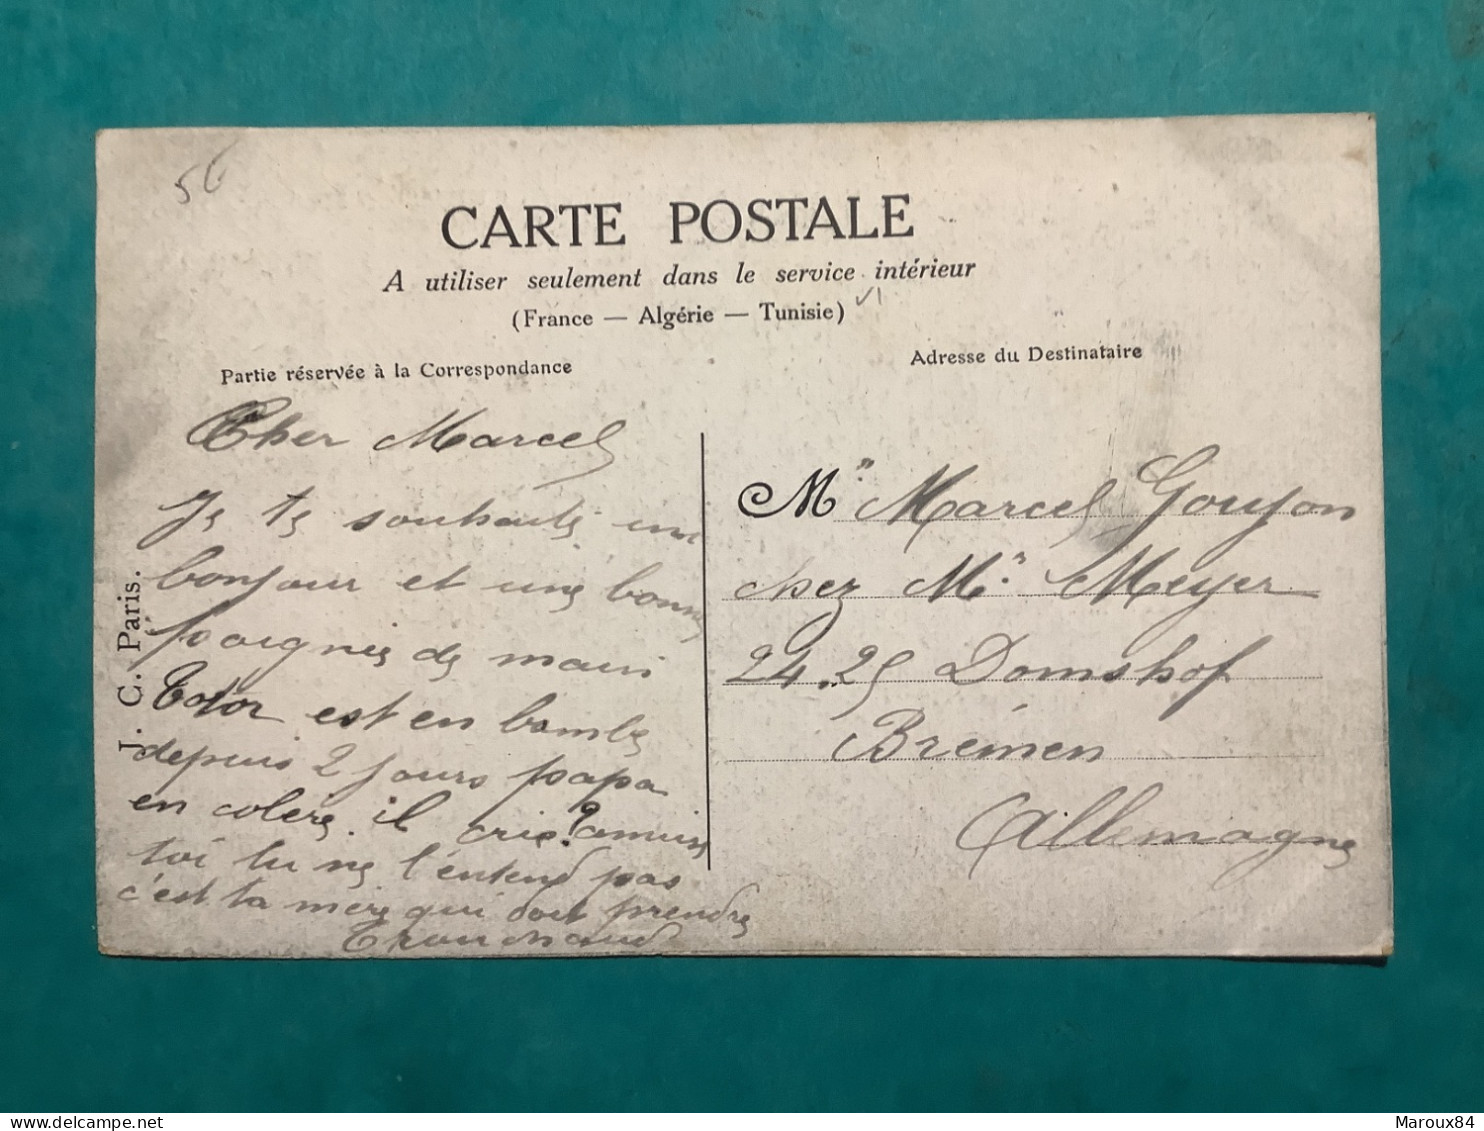 56
CARTE POSTALE
A utiliser seulement dans le service intérieur
(France — Algérie — Tunisie)
Partie réservée à la Correspondance
Adresse du Destinataire
Cher Marcel
Je te souhaite un
bonjour et une bonne
poignée de main
Totor est en bombe
depuis 2 jours papa
en colère. il crie
toi tu ne l'entend pas
c'est ta mère qui doit prendre
J. C. Paris.
Mr Marcel Goujon
chez Mr Meyer
24.25 Domshof
Brêmen
Allemagne
Maroux84